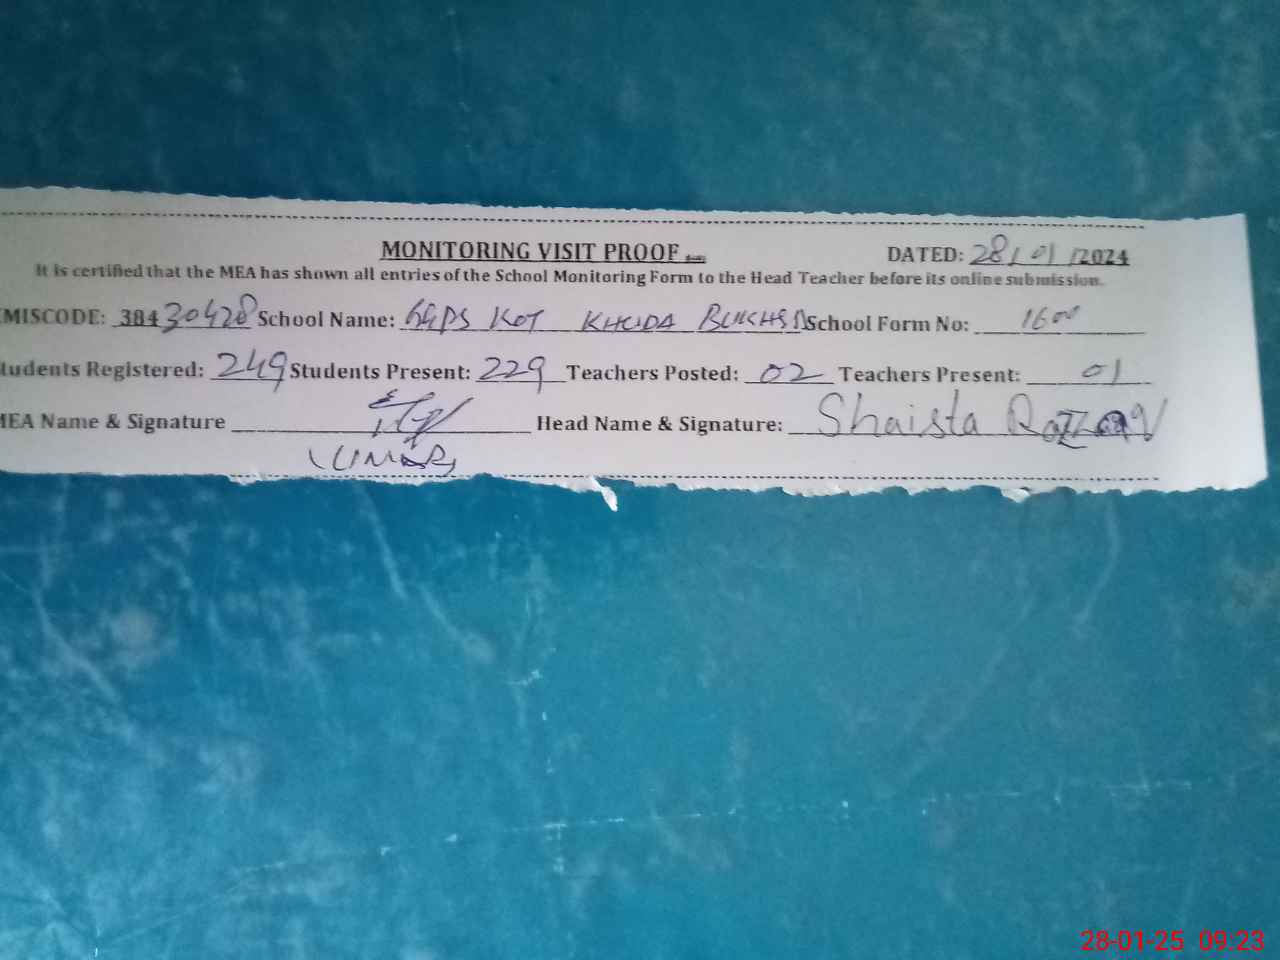 MONITORING VISIT PROOF
DATED: 28/01/2024
It is certified that the MEA has shown all entries of the School Monitoring Form to the Head Teacher before its online submission.
MISCODE: 38430428 School Name: GGPS KOT KHUDA BUKHSH School Form No: 1600
tudents Registered: 249 Students Present: 229 Teachers Posted: 02 Teachers Present: 01
MEA Name & Signature Head Name & Signature: Shaista Razzaq
UMAR
28-01-25 09:23